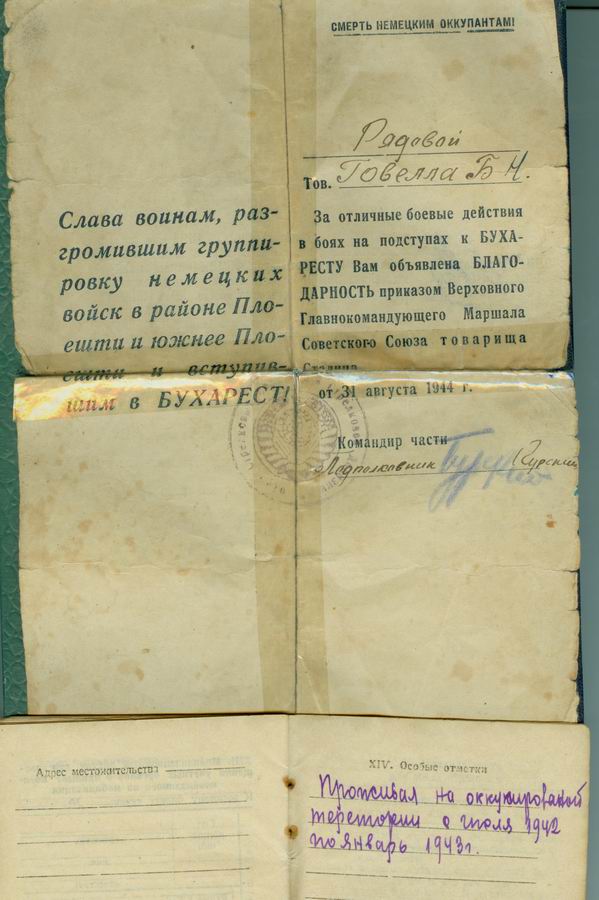 СМЕРТЬ НЕМЕЦКИМ ОККУПАНТАМ!
Слава воинам, раз-
громившим группи-
ровку немецких
войск в районе Пло-
ешти и южнее Пло-
ешти и вступив-
шим в БУХАРЕСТ!
Рядовой
Тов. Говелла Б Н.
За отличные боевые действия
в боях на подступах к БУХА-
РЕСТУ Вам объявлена БЛАГО-
ДАРНОСТЬ приказом Верховного
Главнокомандующего Маршала
Советского Союза товарища
Сталина
от 31 августа 1944 г.
Командир части
Подполковник Курский
Адрес местожительства
XIV. Особые отметки
Проживал на оккупированой
теретории с июля 1942
по январь 1943г.